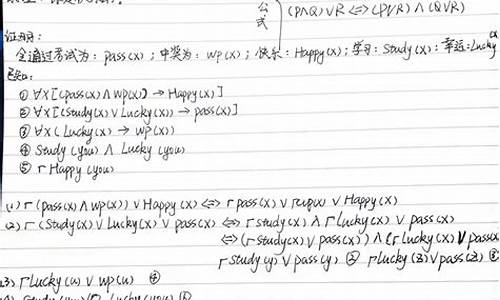 公式 (P∧Q)∨R ⇔ (P∨R) ∧ (Q∨R)
证明:
全通过考试为: pass(x); 中奖为: wp(x); 快乐: Happy(x); 学习: Study(x); 幸运: Lucky(x)
已知:
① ∀x[(pass(x) ∧ wp(x)) → Happy(x)]
② ∀x[(Study(x) ∨ Lucky(x)) → pass(x)]
③ ∀x (Lucky(x) → wp(x))
④ Study (you) ∧ Lucky (you)
⑤ ┌ Happy (you)
(1) ┌ (pass(x) ∧ wp(x)) ∨ Happy(x) ⇔ ┌ pass(x) ∨ ┌ wp(x) ∨ Happy(x)
(2) ┌ (Study(x) ∨ Lucky(x) ∨ pass(x) ⇔ ┌ Study(x) ∧ ┌ Lucky(x) ∨ pass(x)
⇔ (┌ Study(x) ∨ pass(x)) ∧ (┌ Lucky(x) ∨ pass(x)
┌ Study(y) ∨ pass(y) ② ┌ Lucky(z) ∨ pass(z) ③
(3) ┌ Lucky(u) ∨ wp(u) ④